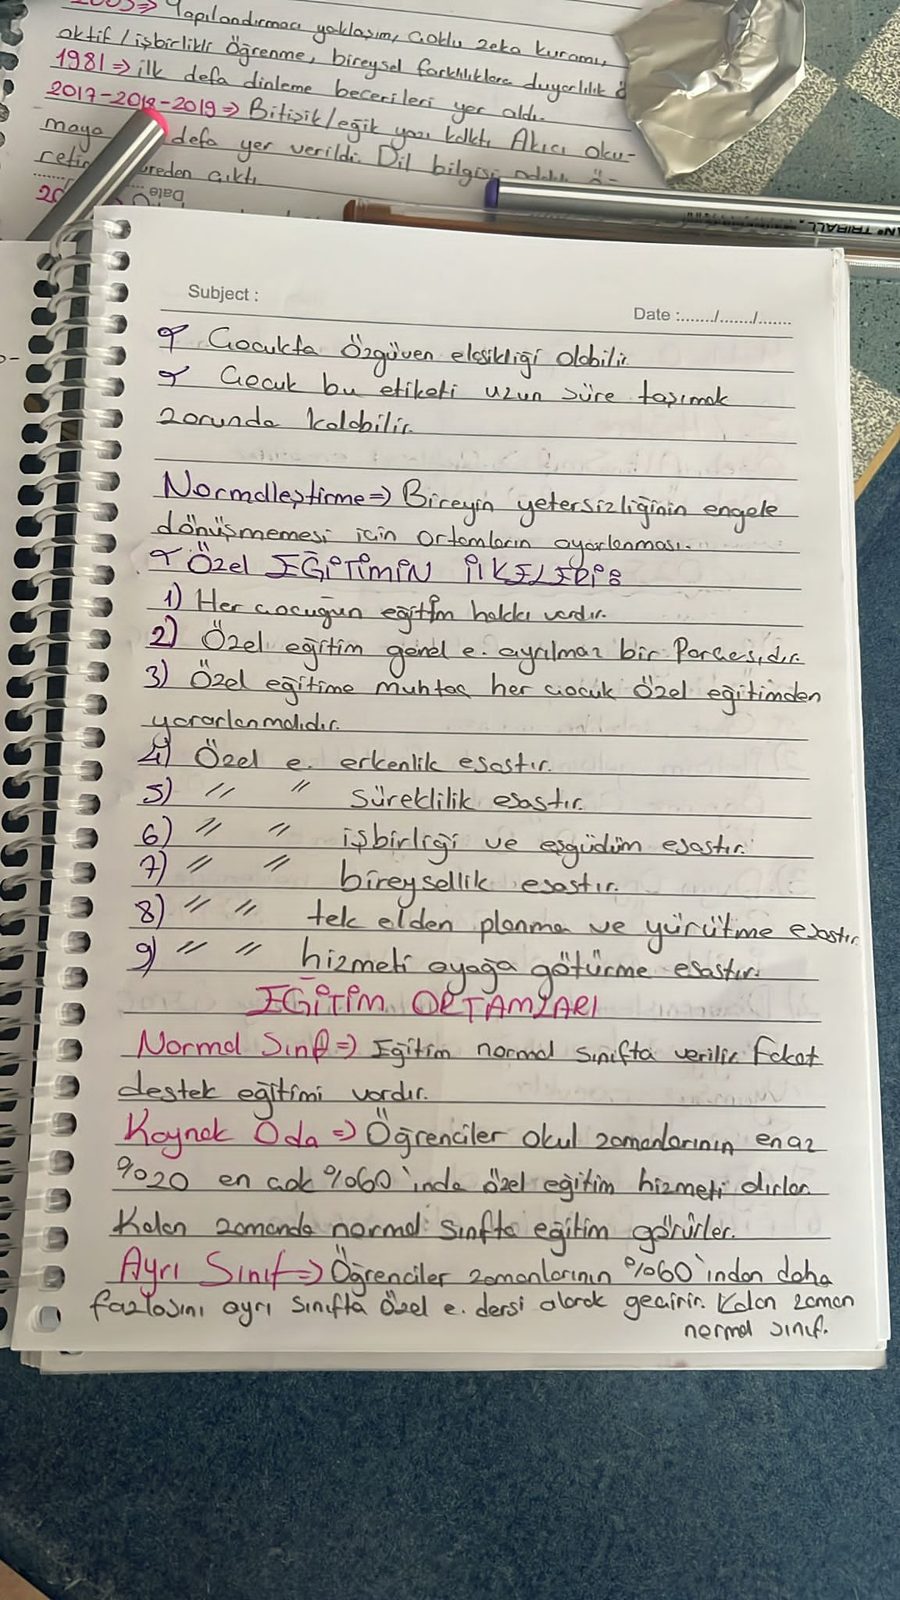 2005⇒ Yapılandırmacı yaklaşım, çoklu zeka kuramı,
aktif/işbirlikli öğrenme, bireysel farklılıklara duyarlılık
1981⇒ ilk defa dinleme becerileri yer aldı.
2017-2018-2019⇒ Bitişik/eğik yazı kalktı. Akıcı oku-
maya defa yer verildi. Dil bilgisi
retim üreden çıktı
Date
TRIBALL
Subject :
Date :......./......./.......
Çocukta özgüven eksikliği olabilir.
Çocuk bu etiketi uzun süre taşımak
zorunda kalabilir.
Normalleştirme⇒ Bireyin yetersizliğinin engele
dönüşmemesi için ortamların ayarlanması.
ÖZEL EĞİTİMİN İLKELERİ:
1) Her çocuğun eğitim hakkı vardır.
2) Özel eğitim genel e. ayrılmaz bir parçasıdır.
3) Özel eğitime muhtaç her çocuk özel eğitimden
yararlanmalıdır.
4) Özel e. erkenlik esastır.
5) " " süreklilik esastır.
6) " " işbirliği ve eşgüdüm esastır.
7) " " bireysellik esastır.
8) " " tek elden planma ve yürütme esastır.
9) " " hizmeti ayağa götürme esastır.
EĞİTİM ORTAMLARI
Normal Sınıf⇒ Eğitim normal sınıfta verilir. Fakat
destek eğitimi vardır.
Kaynak Oda⇒ Öğrenciler okul zamanlarının en az
%20 en çok %60'ında özel eğitim hizmeti alırlar.
Kalan zamanda normal sınıfta eğitim görürler.
Ayrı Sınıf⇒ Öğrenciler zamanlarının %60'ından daha
fazlasını ayrı sınıfta özel e. dersi alarak geçirir. Kalan zaman
normal sınıf.